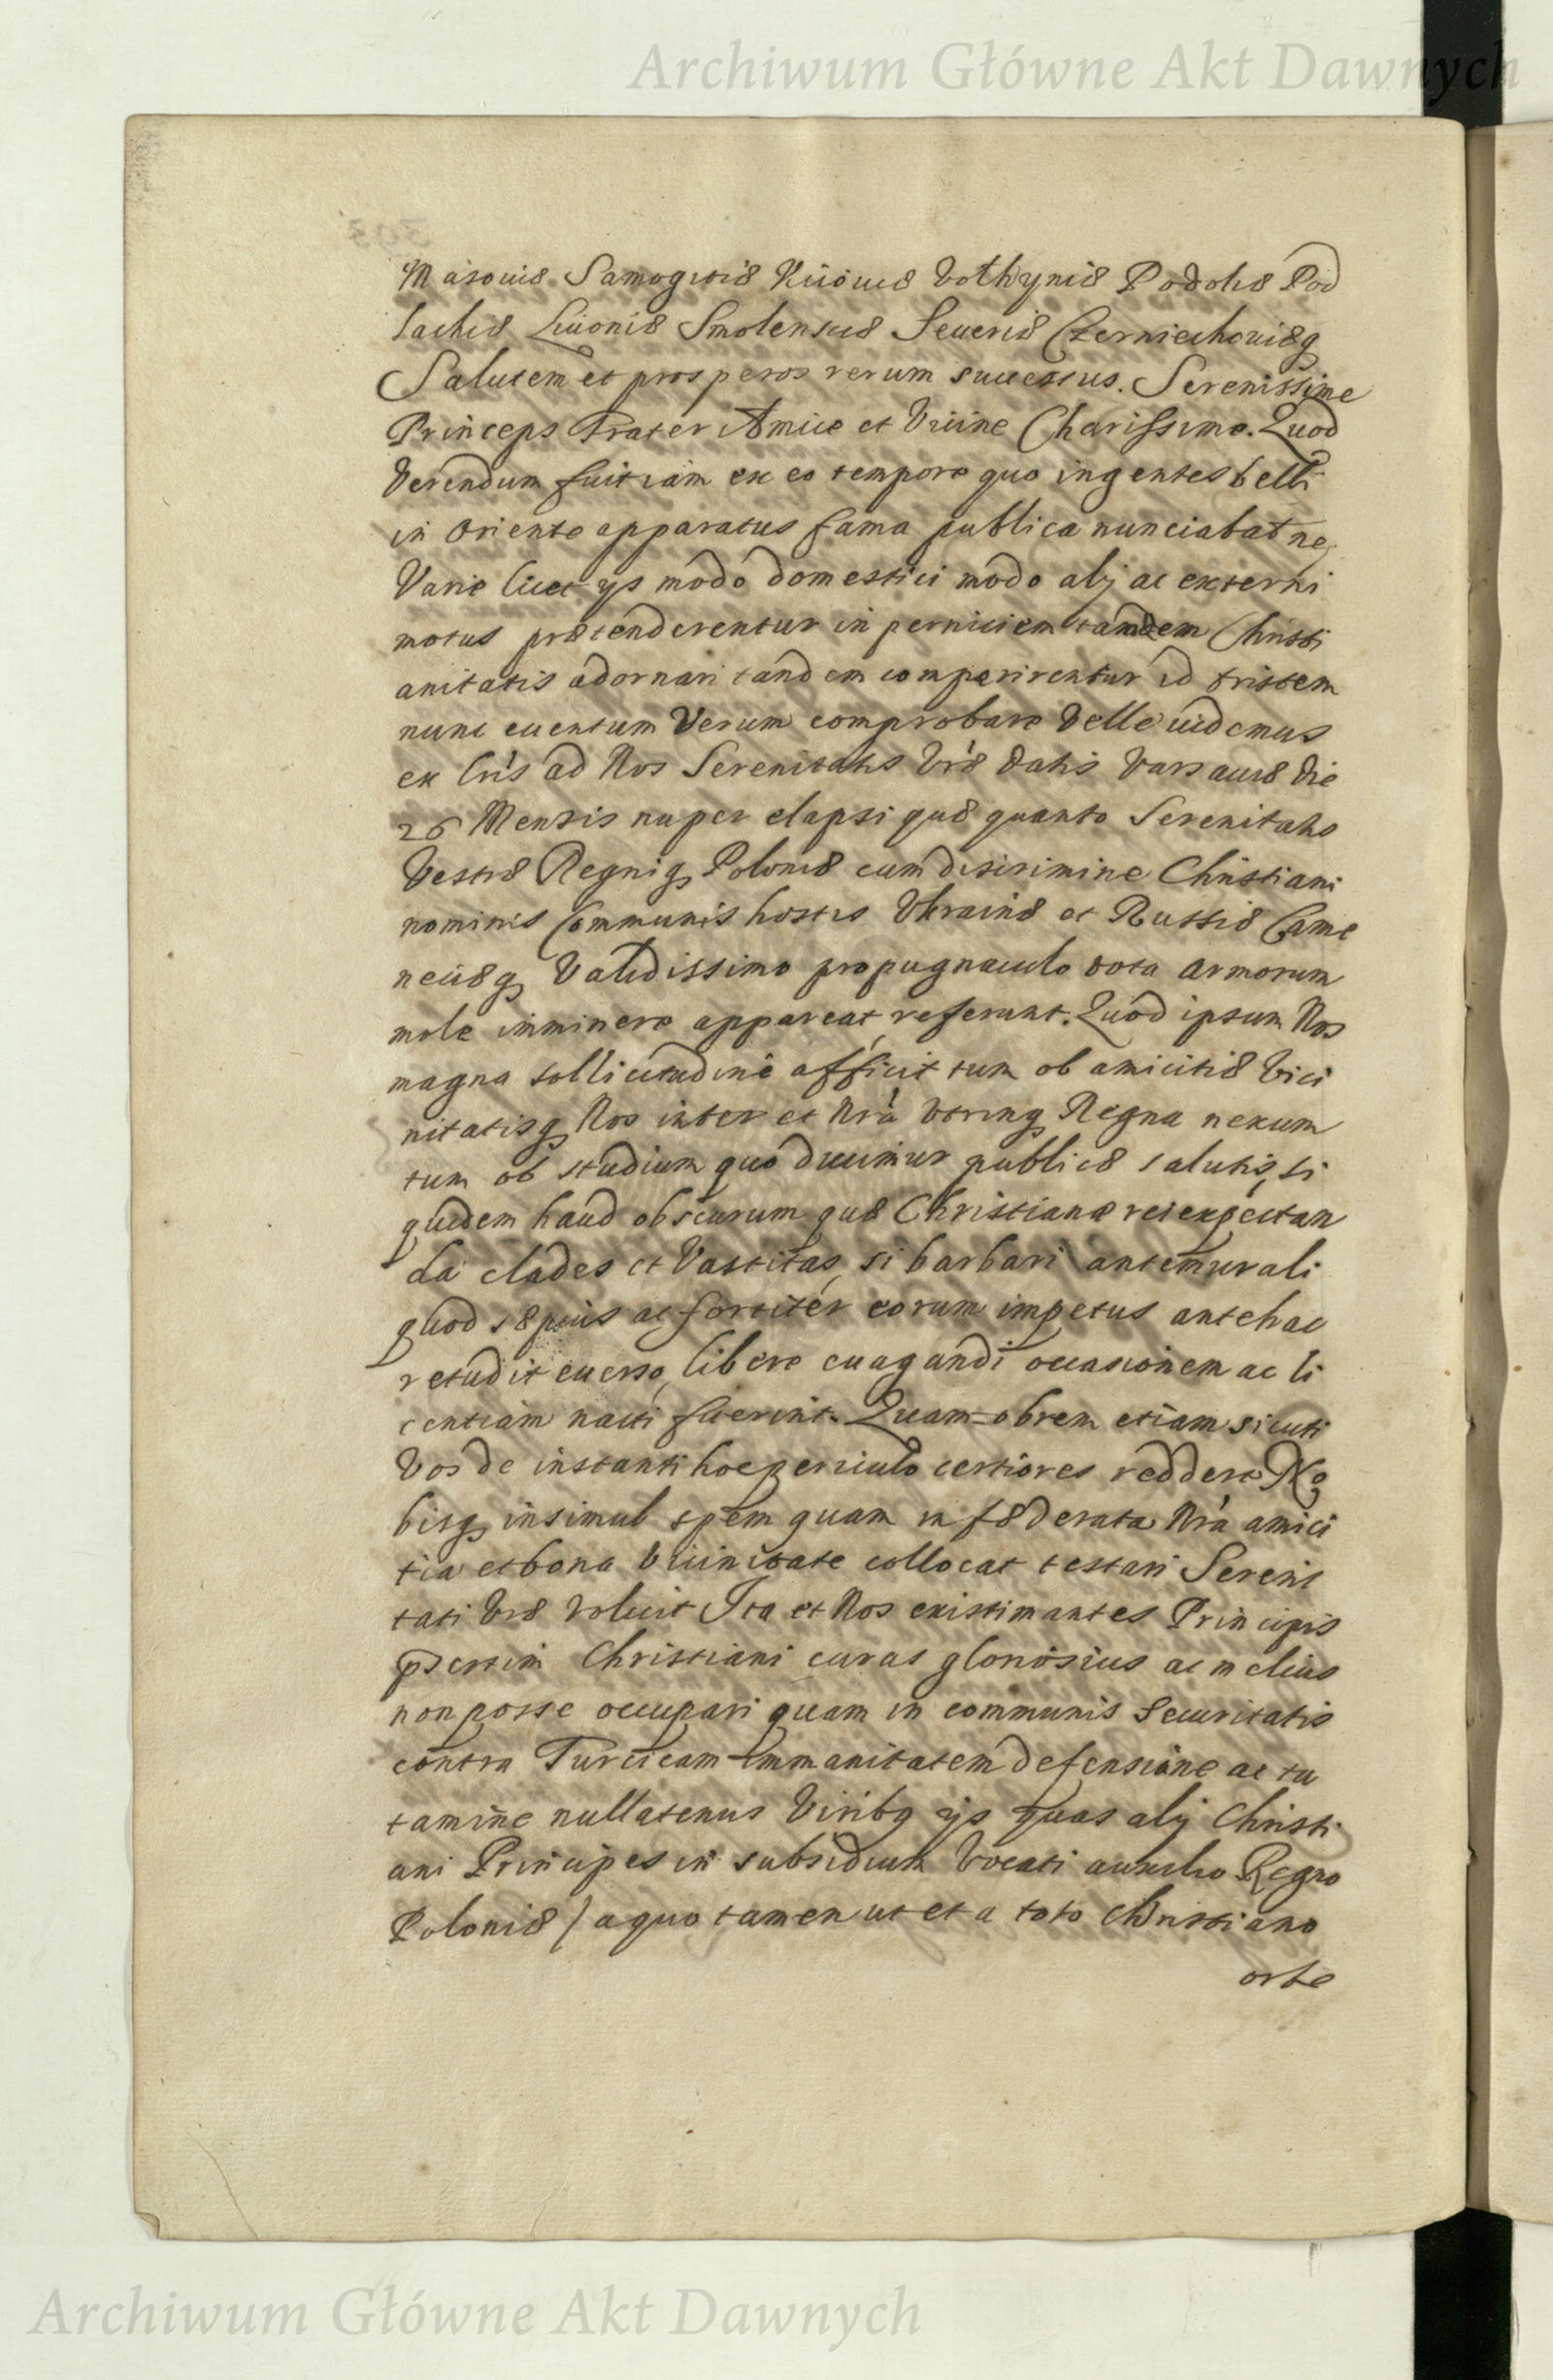 Archiwum Główne Akt Dawnych
Masouiæ Samogitiæ Kiiouiæ Volhyniæ Podoliæ Pod
lachiæ Liuoniæ Smolensciæ Seueriæ Czerniechouiæq
Salutem et prosperos rerum successus. Serenissime
Princeps Frater Amice et Vicine Charissime. Quod
Verendum fuit iam ex eo tempore quo ingentes belli
in Oriente apparatus fama publica nunciabat ne
Varie licet ijs modo domestici modo alij ac externi
motus prætenderentur in perniciem tamdem Christi
anitatis adornari tandem comperirentur id tristem
nunc euentum Verum comprobare Velle uidemus
ex lris ad Nos Serenitatis Vræ datis Varsauiæ die
26 Mensis nuper elapsi quæ quanto Serenitatis
Vestræ Regniq Poloniæ cum discrimine Christiani
nominis Communis hostis Vkrainæ et Russiæ Came
neciæq Validissimo propugnaculo tota armorum
mole imminere appareat, referunt. Quod ipsum Nos
magna sollicitudine afficit tum ob amicitiæ Vici
nitatisq Nos inter et Nra Vtrinq Regna nexum
tum ob studium quo ducimur publicæ salutis, si
quidem haud obscurum quæ Christianæ rei expectan
da clades et Vastitas, si barbari antemurali
quod sæpius ac fortiter eorum impetus antehac
retudit euerso, libere euagandi occasionem ac li
centiam nacti fuerint. Quam=obrem etiam sicuti
Vos de instanti hoc periculo certiores reddere No
bisq insimul spem quam in fæderata Nra amici
tia et bona Vicinitate collocat testari Sereni
tati Vræ Voluit Ita et Nos existimantes Principis
psertim Christiani curas gloriosius ac melius
non posse occupari quam in communis Securitatis
contra Turcicam Immanitatem defensione ac tu
tamine nullatenus Viribq ijs quas alij Christi
ani Principes in subsidium Vocati auxilio Regno
Poloniæ / a quo tamen ut et a toto Christiano
orbe
Archiwum Główne Akt Dawnych